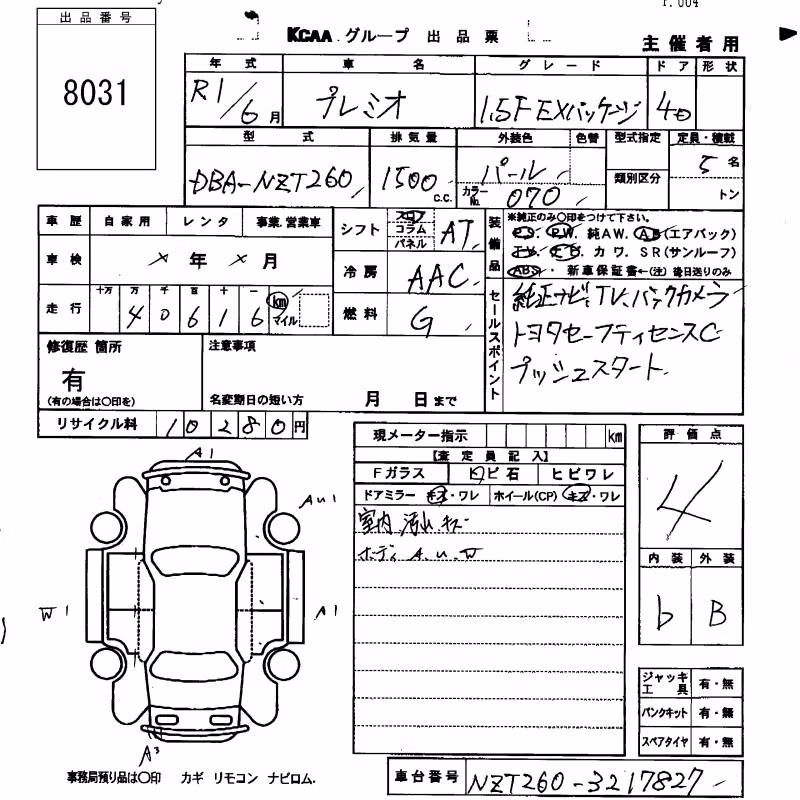 P.004
出品番号
8031
KCAA グループ 出品票
主催者用
年式 車名 グレード ドア 形状
R1/6月 プレミオ 1.5F EXパッケージ 4D
型式 排気量 外装色 色替 型式指定 定員・積載
DBA-NZT260 1500 c.c. パール 5名
カラーNo. 070 類別区分 トン
車歴 自家用 レンタ 事業.営業車
シフト フロア コラム パネル AT
装備品
※純正のみ○印をつけて下さい。
P.S. P.W. 純A.W. A.B(エアバック)
カワ. S R(サンルーフ)
ABS. 新車保証書←(注)後日送りのみ
車検 × 年 × 月
冷房 AAC
走行 十万 万 千 百 十 一
4 0 6 1 6 km マイル
燃料 G
セールスポイント
純正ナビ、TV、バックカメラ
トヨタセーフティセンスC
プッシュスタート
修復歴 箇所
有
(有の場合は○印を)
注意事項
名変期日の短い方 月 日まで
リサイクル料 10 280円
現メーター指示 km
【査定員記入】
Fガラス トビ石 ヒビワレ
ドアミラー キズ・ワレ ホイール(CP) キズ・ワレ
室内 汚れ キズ
ボディ A.U.W
評価点
4
内装 外装
b B
A1
AU1
W1
A1
A3
ジャッキ工具 有・無
パンクキット 有・無
スペアタイヤ 有・無
事務局預り品は○印 カギ リモコン ナビロム.
車台番号 NZT260-3217827